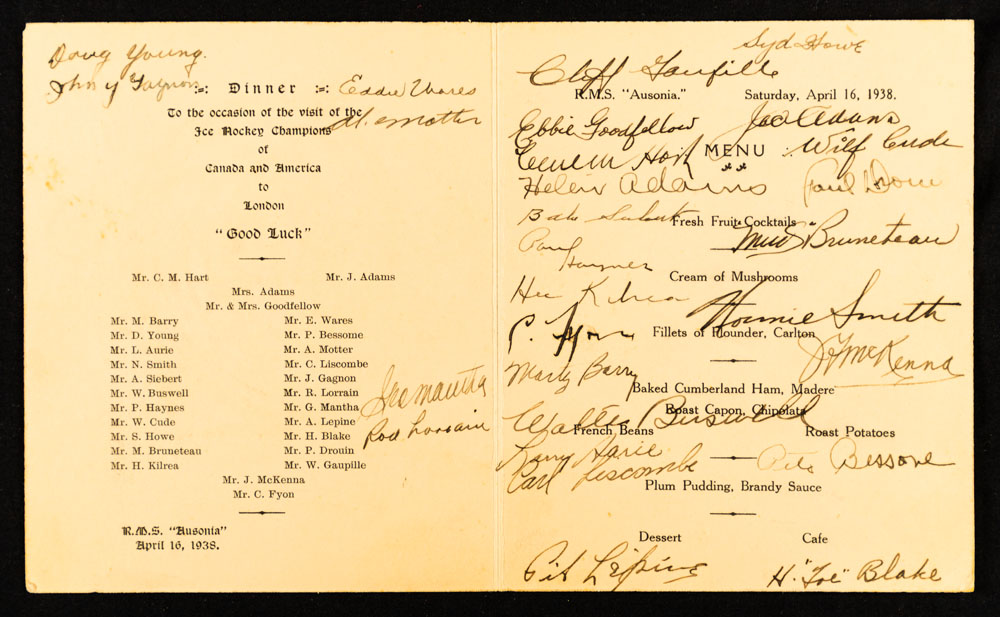 Doug Young.
Johnny Gagnon
:-: Dinner :-:
Eddie Wares
To the occasion of the visit of the
Ice Hockey Champions
A. e. motter
of
Canada and America
to
London
"Good Luck"
Mr. C. M. Hart Mr. J. Adams
Mrs. Adams
Mr. & Mrs. Goodfellow
Mr. M. Barry Mr. E. Wares
Mr. D. Young Mr. P. Bessome
Mr. L. Aurie Mr. A. Motter
Mr. N. Smith Mr. C. Liscombe
Mr. A. Siebert Mr. J. Gagnon
Mr. W. Buswell Mr. R. Lorrain
Mr. P. Haynes Mr. G. Mantha
Mr. W. Cude Mr. A. Lepine
Mr. S. Howe Mr. H. Blake
Mr. M. Bruneteau Mr. P. Drouin
Mr. H. Kilrea Mr. W. Gaupille
Mantha
Rod Lorrain
Mr. J. McKenna
Mr. C. Fyon
R.M.S. "Ausonia"
April 16, 1938.
Syd Howe
Cliff Goupille
R.M.S. "Ausonia." Saturday, April 16, 1938.
Ebbie Goodfellow Jack Adams
Cecil M Hart MENU Wilf Cude
Helen Adams Paul Drouin
Babe Siebert Fresh Fruit Cocktails
"Mud" Bruneteau
Paul Haynes
Cream of Mushrooms
Hec Kilrea
Normie Smith
C. Fyon Fillets of Flounder, Carlton
J F McKenna
Marty Barry
Baked Cumberland Ham, Madere
Roast Capon, Chipolata
Walter Buswell
French Beans Roast Potatoes
Larry Aurie
Carl Liscombe Pete Bessone
Plum Pudding, Brandy Sauce
Dessert Cafe
Pit Lépine H. "Toe" Blake